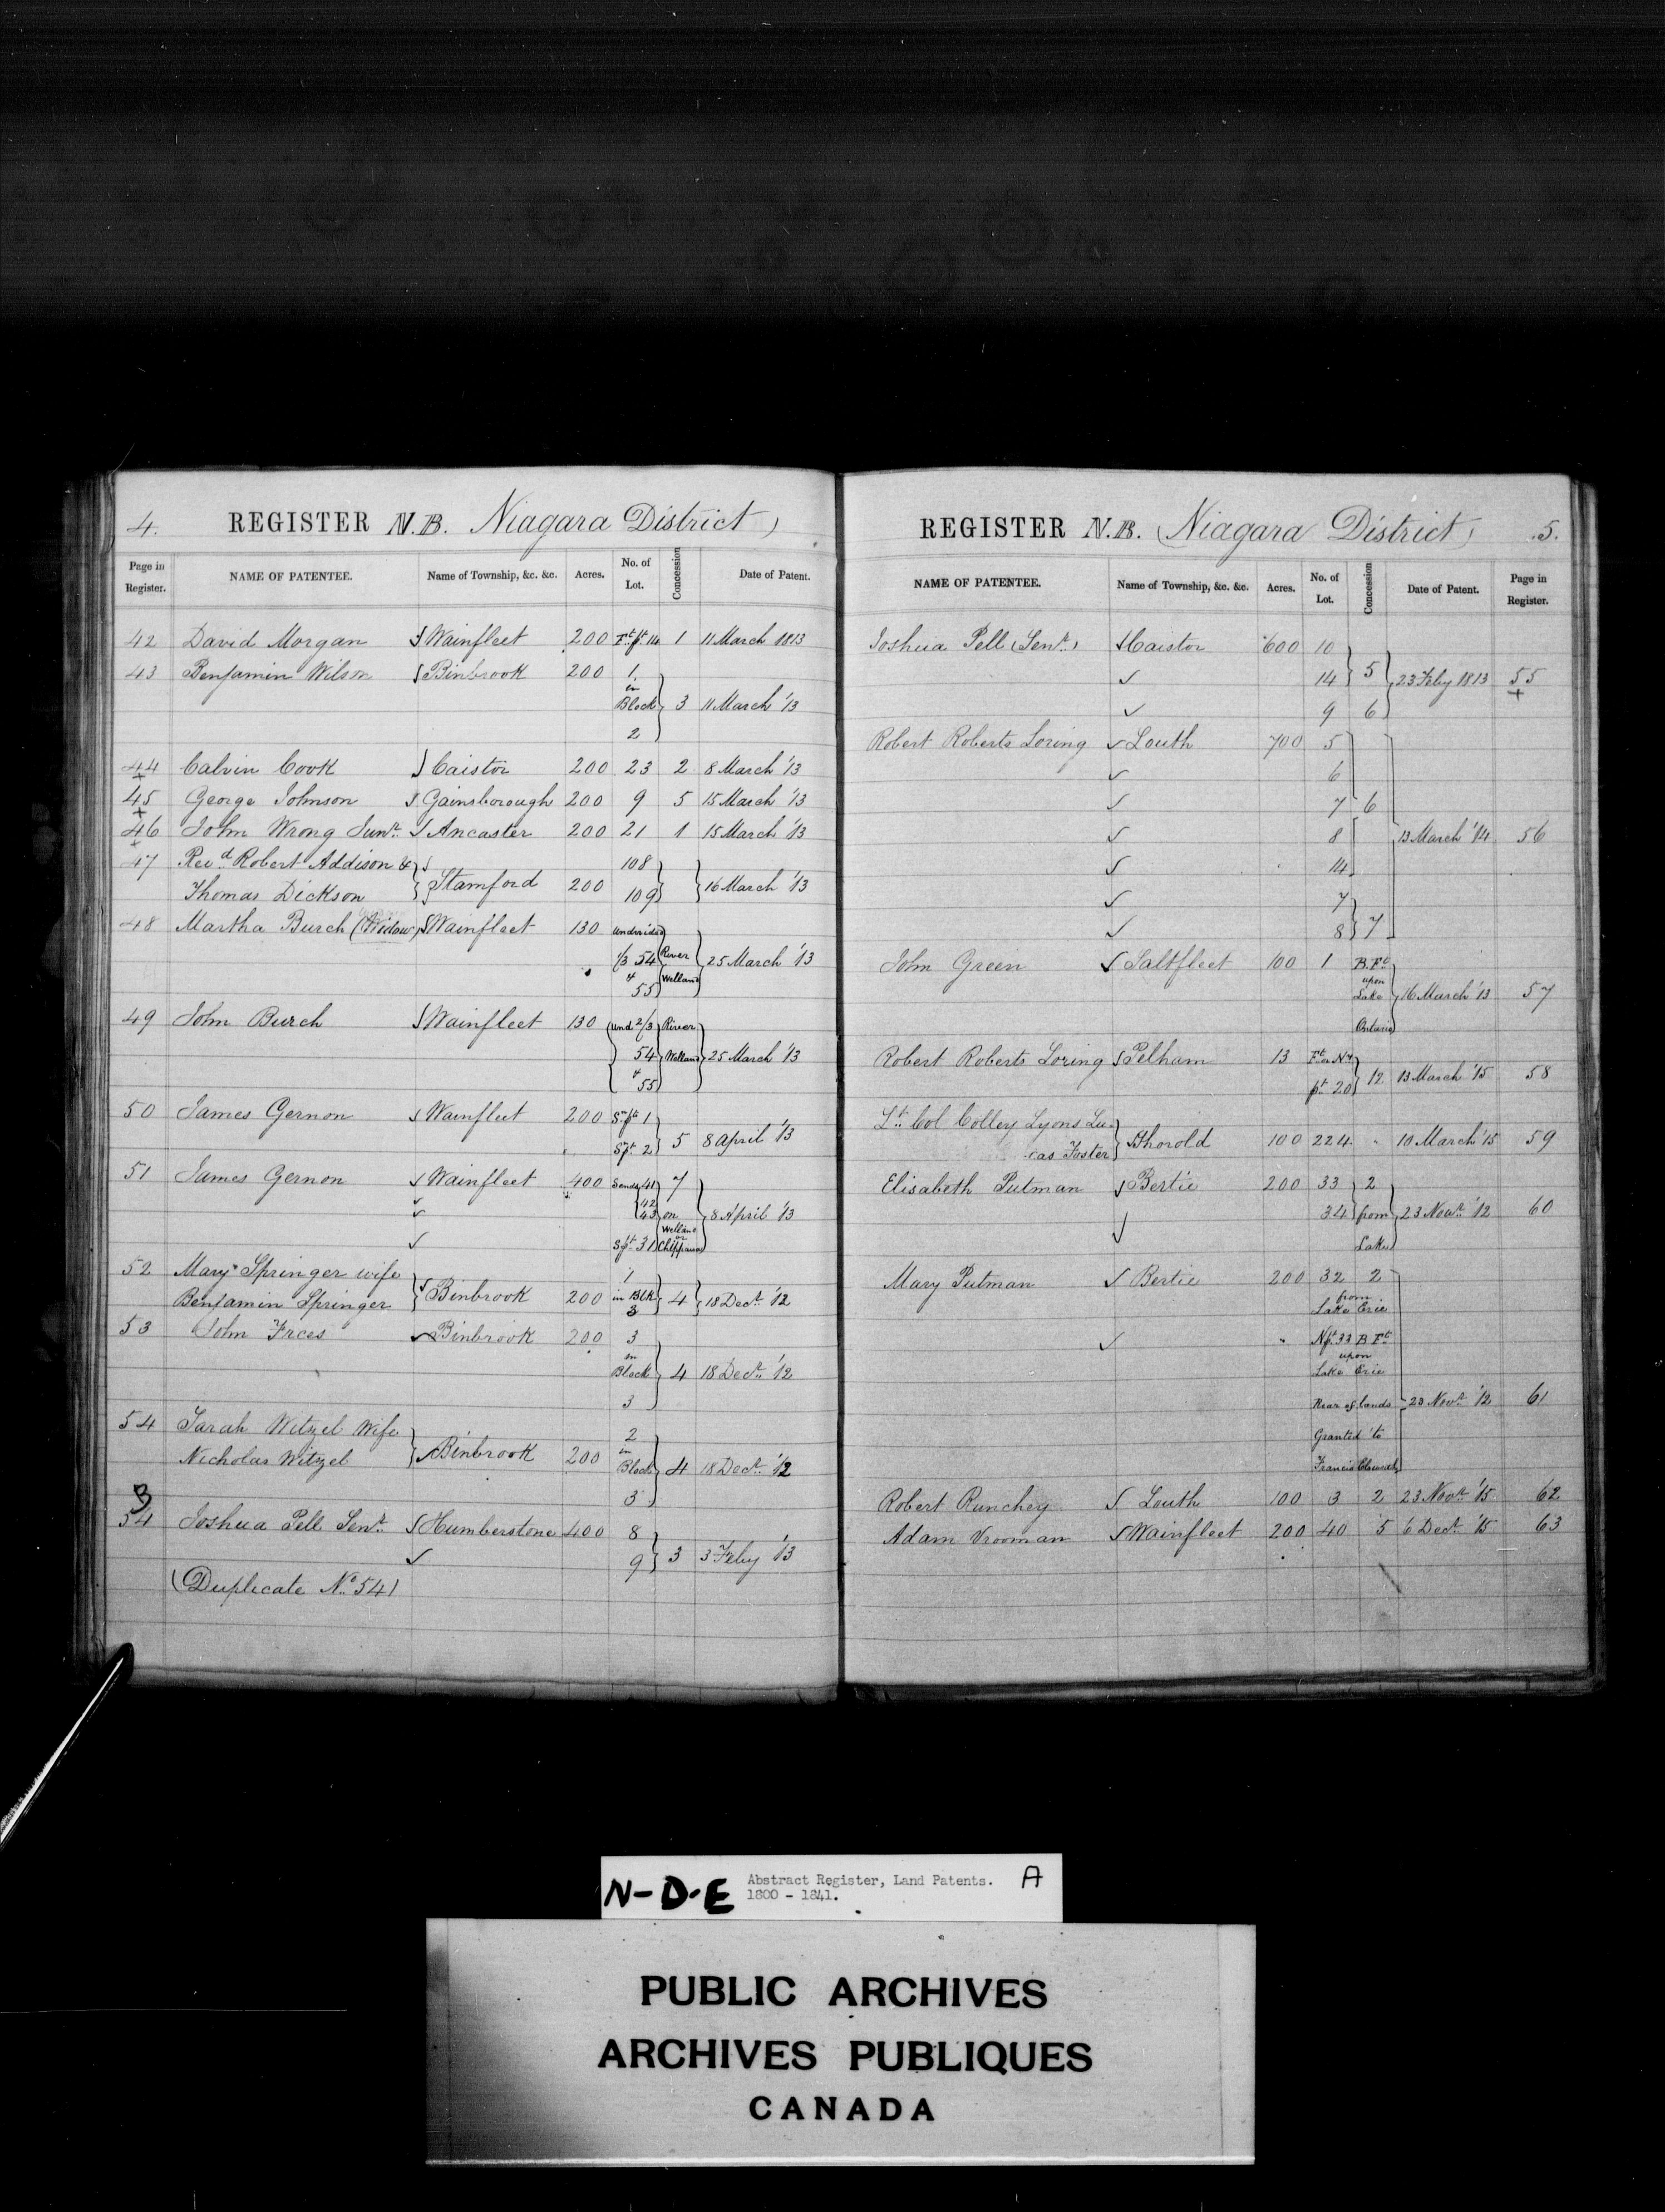 4. REGISTER N.B. Niagara District
Page in Register. NAME OF PATENTEE. Name of Township, &c. &c. Acres. No. of Lot. Concession Date of Patent.
42 David Morgan Wainfleet 200 Ft. pt. 14 1 11 March 1813
43 Benjamin Wilson Binbrook 200 1.
in
Block 3 11 March '13
2
44 Calvin Cook Caistor 200 23 2 8 March '13
45 George Johnson Gainsborough 200 9 5 15 March '13
46 John Wrong Junr. Ancaster 200 21 1 15 March '13
47 Revd. Robert Addison & 108
Thomas Dickson Stamford 200 109 16 March '13
48 Martha Burch (Widow) Wainfleet 130 undivided
1/3 54 River 25 March '13
& Welland
55
49 John Burch Wainfleet 130 und 2/3 River
54 Welland 25 March '13
& 55
50 James Gernon Wainfleet 200 S. pt. 1
S pt. 2 5 8 April '13
51 James Gernon Wainfleet 400 41 7
42
43 on 8 April '13
Welland
or
S pt. 31 Chippawa
52 Mary Springer wife 1
Benjamin Springer Binbrook 200 in Blk 4 18 Decr. '12
3
53 John Frces Binbrook 200 3
in
Block 4 18 Decr. '12
3
54 Sarah Witzel Wife 2
Nicholas Witzel Binbrook 200 in
Block 4 18 Decr. '12
3
B
54 Joshua Pell Senr. Humberstone 400 8
9 3 3 Feby '13
(Duplicate No. 54)
REGISTER N.B. (Niagara District) .5.
NAME OF PATENTEE. Name of Township, &c. &c. Acres. No. of Lot. Concession Date of Patent. Page in Register.
Joshua Pell (Senr.) Caistor 600 10
14 5 23 Feby 1813 55
9 6
Robert Roberts Loring Louth 700 5
6
7 6
8 13 March '14 56
14
7
8 7
John Green Saltfleet 100 1 B. Ft.
upon
Lake 16 March '13 57
Ontario
Robert Roberts Loring Pelham 13 Ft. or N.
pt. 20 12 13 March '15 58
Lt. Col Colley Lyons Lu-
cas Foster Thorold 100 224 " 10 March '15 59
Elisabeth Putman Bertie 200 33 2
34 from 23 Novr. '12 60
Lake
Mary Putman Bertie 200 32 2
from
Lake Erie
" N pt. 33 B Ft.
upon
Lake Erie
Rear of lands 23 Novr. '12 61
Granted to
Francis
Robert Runchey Louth 100 3 2 23 Novr. '15 62
Adam Vrooman Wainfleet 200 40 5 6 Decr. '15 63
N-D-E Abstract Register, Land Patents. A
1800 - 1841.
PUBLIC ARCHIVES
ARCHIVES PUBLIQUES
CANADA